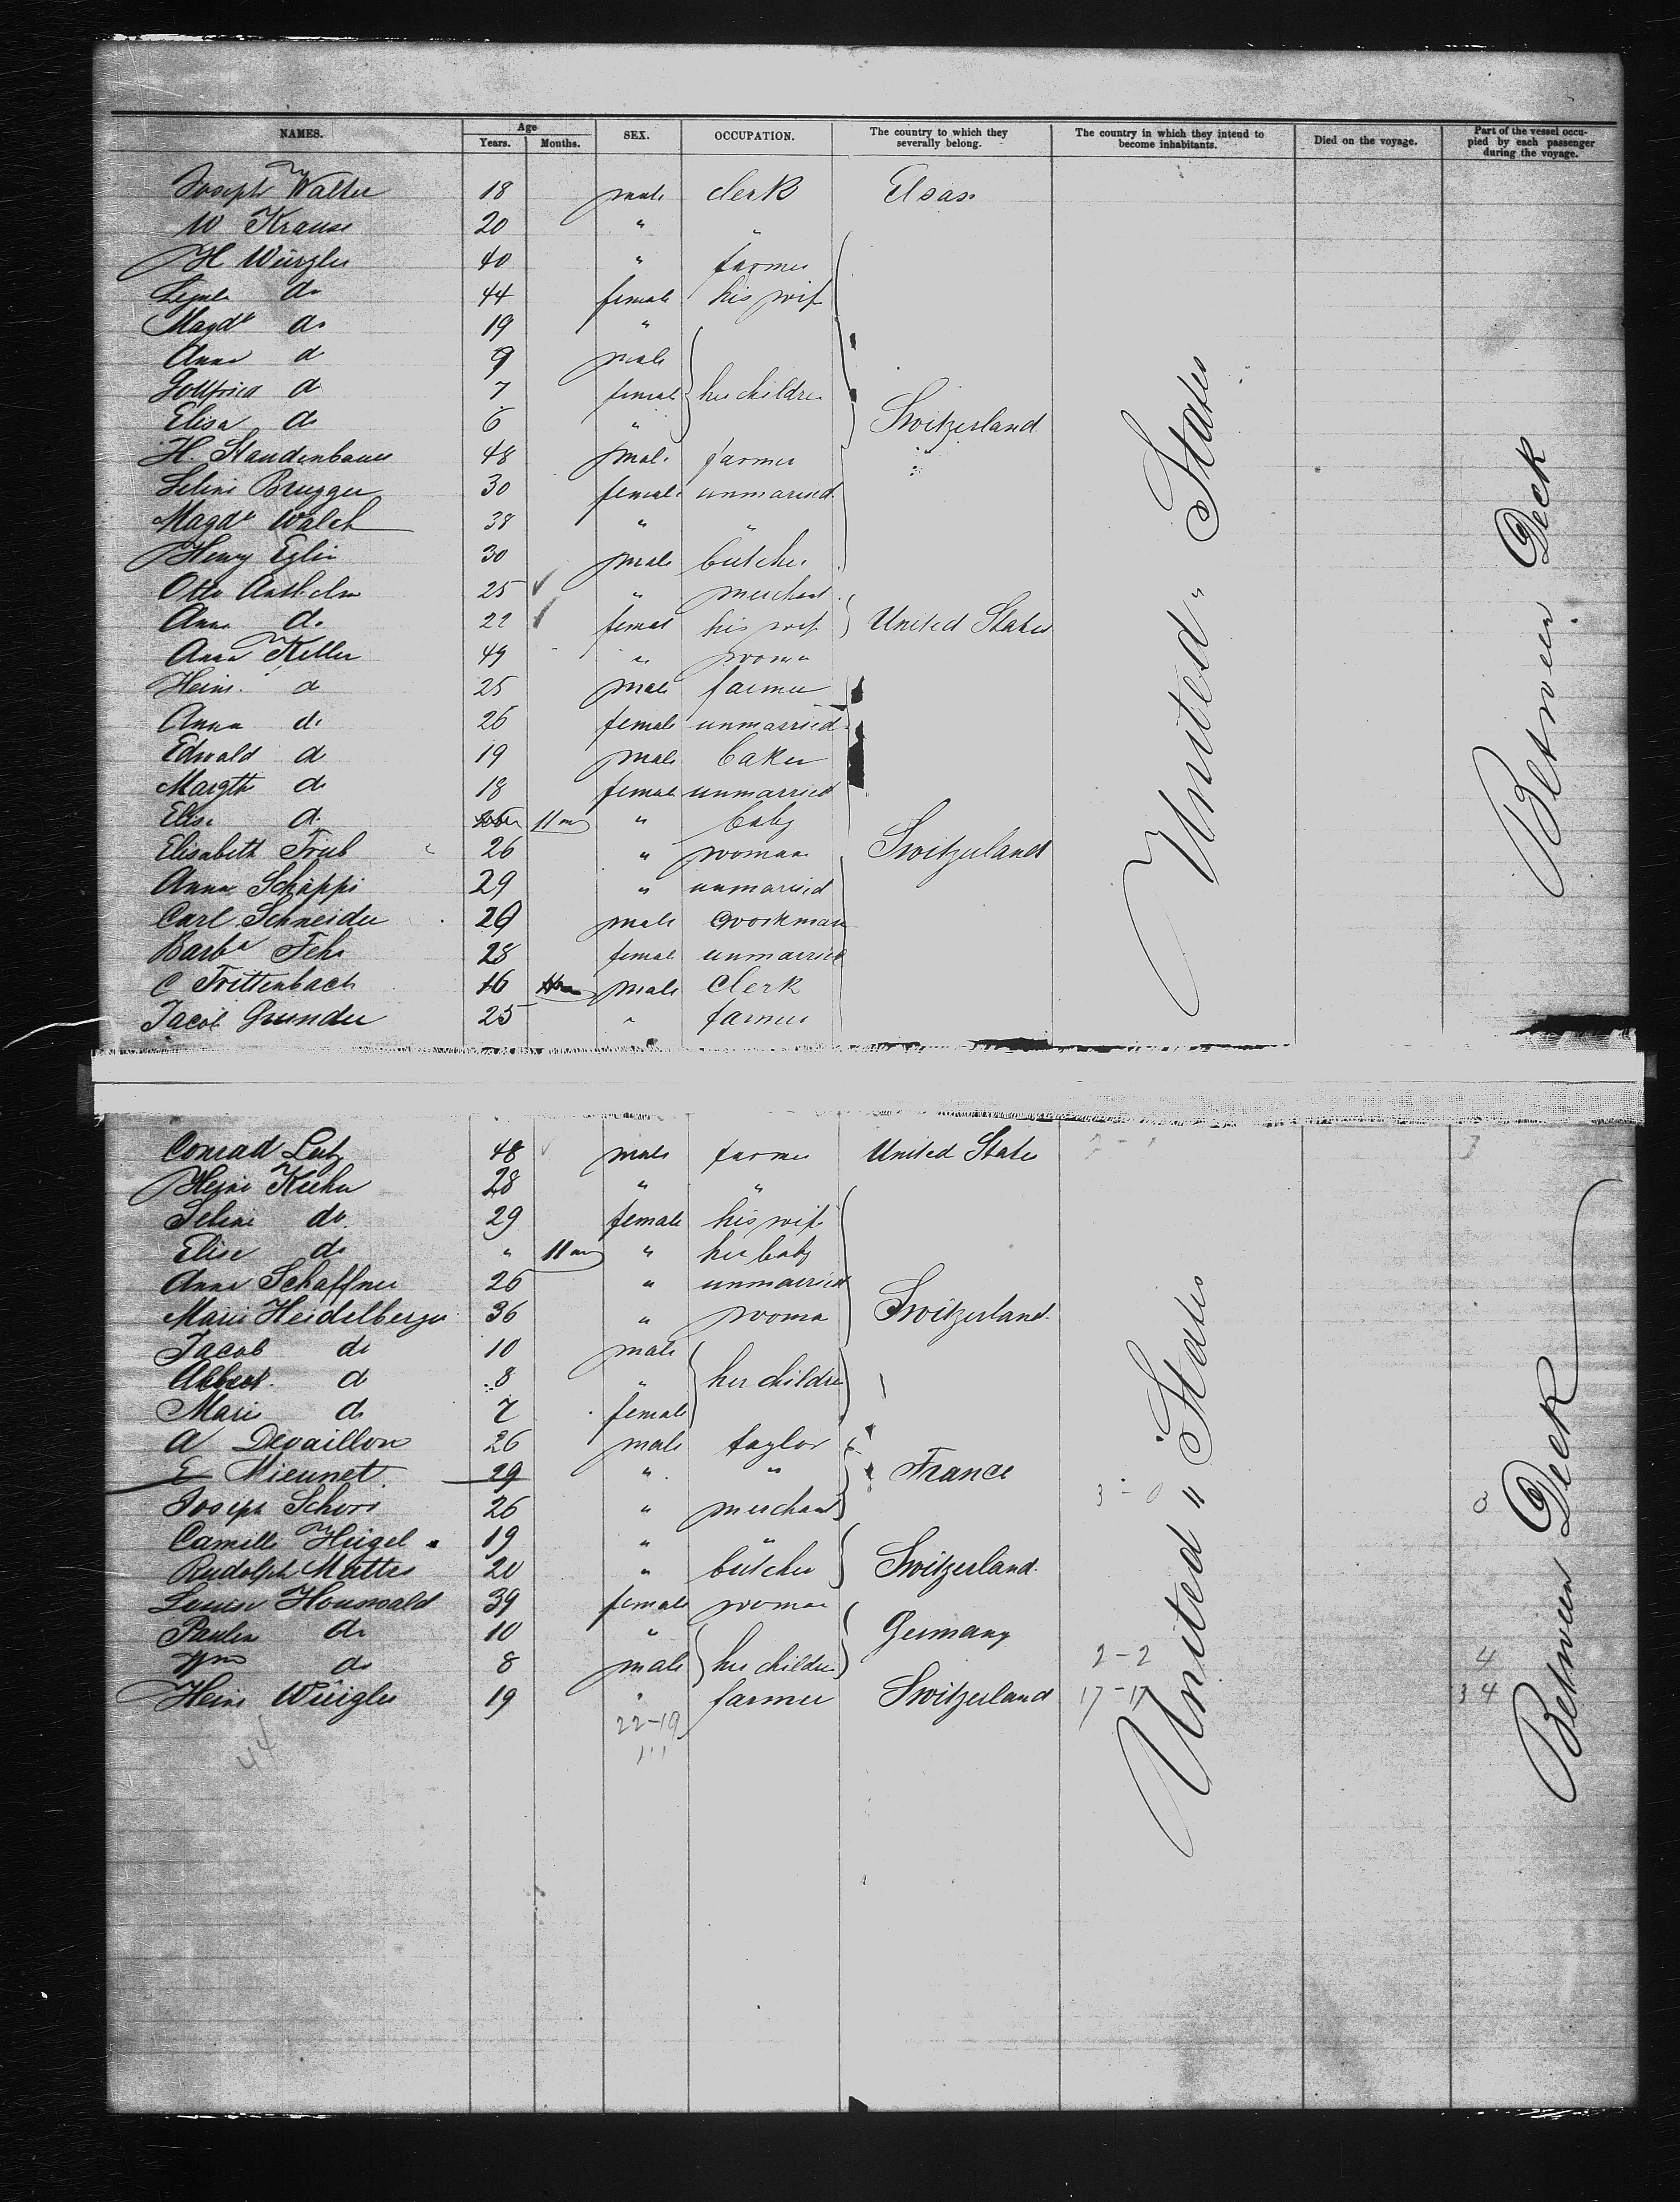 NAMES. Age SEX. OCCUPATION. The country to which they severally belong. The country in which they intend to become inhabitants. Died on the voyage. Part of the vessel occupied by each passenger during the voyage.
Years. Months.
Joseph Walter 18 male clerk Elsas
W Krause 20 " "
H Würgler 40 " farmer
do 44 female his wife
Magda do 19 "
Anna do 9 male
Gottfried do 7 female her children
Elisa do 6 " Switzerland
H. Staudenbauer 48 male farmer "
Selini Brugger 30 female unmarried
Magda Walch 38 " "
Henry Eglin 30 male butcher
Otto 25 " merchant
Anna do 22 female his wife United States
Anna Keller 49 " woman
Heinr. do 25 male farmer
Anna do 26 female unmarried
Edwald do 19 male baker
Margth do 18 female unmarried
Elise do 11 m " baby
Elisabeth Trub 26 " woman Switzerland
Anna Schäppi 29 " unmarried
Carl Schneider 29 male workman
Barba Fehr 28 female unmarried
C Trittenbach 16 male Clerk
Jacob Grunder 25 " farmer
United " States
Between Deck
Conrad Lutz 48 male farmer United States
Heini Kuhn 28 " "
Selini do 29 female his wife
Elise do " 11 m " her baby
Anna Schaffner 26 " unmarried
Marie Heidelberger 36 " woman Switzerland
Jacob do 10 male
Albert do 8 " her children
Marie do 7 female
A Devaillon 26 male taylor
E Mieunet 29 " " France
Joseph Schori 26 " merchant 3-0 0
Camille Heigel 19 " "
Rudolph Mattes 20 " butcher Switzerland
Louise Houswald 39 female woman
Paulin do 10 " Germany
Wm do 8 male her children 2-2 4
Heini Würgler 19 " farmer Switzerland 17-17 34
22-19
44
United " States
Between Deck